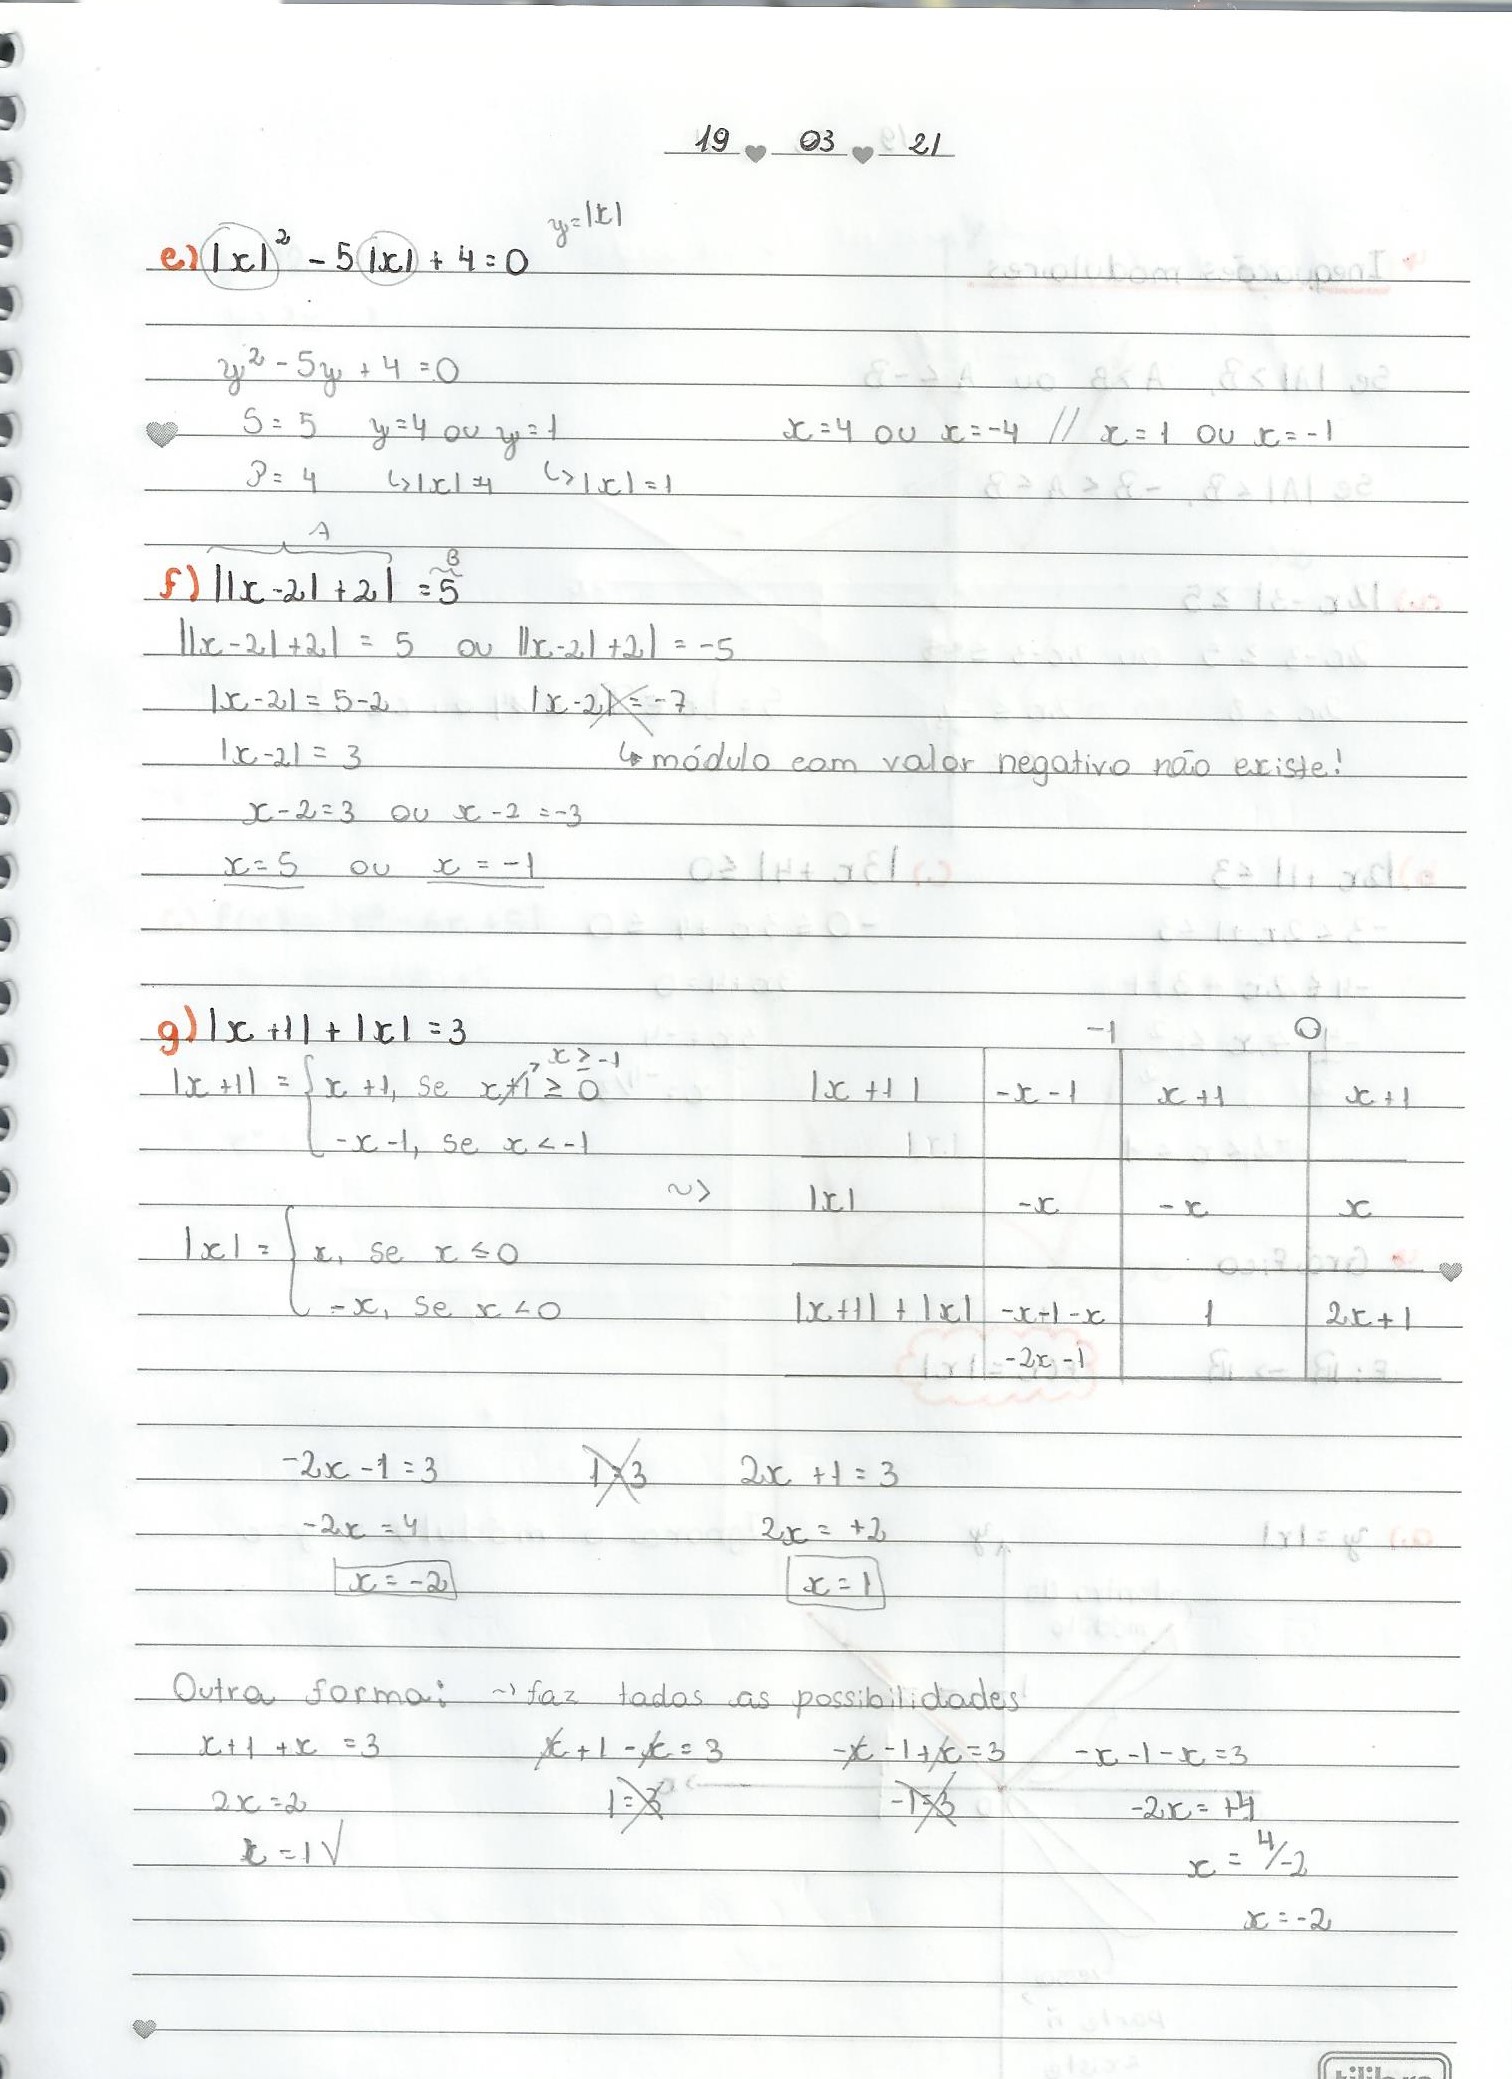 19 03 21
e) |x|² - 5|x| + 4 = 0 y = |x|
y² - 5y + 4 = 0
S = 5 y = 4 ou y = 1 x = 4 ou x = -4 // x = 1 ou x = -1
P = 4 ↳ |x| = 4 ↳ |x| = 1
A B
f) ||x - 2| + 2| = 5
||x - 2| + 2| = 5 ou ||x - 2| + 2| = -5
|x - 2| = 5 - 2 |x - 2| = -7
|x - 2| = 3 ↳ módulo com valor negativo não existe!
x - 2 = 3 ou x - 2 = -3
x = 5 ou x = -1
g) |x + 1| + |x| = 3
|x + 1| = { x + 1, se x + 1 ≥ 0 x ≥ -1
-x - 1, se x < -1
|x| = { x, se x ≤ 0
-x, se x < 0
-1 0
|x + 1| -x - 1 x + 1 x + 1
|x| -x -x x
|x + 1| + |x| -x - 1 - x 1 2x + 1
-2x - 1
-2x - 1 = 3 1 = 3 2x + 1 = 3
-2x = 4 2x = +2
x = -2 x = 1
Outra forma: ~> faz todas as possibilidades
x + 1 + x = 3 x + 1 - x = 3 -x - 1 + x = 3 -x - 1 - x = 3
2x = 2 1 = 3 -1 = 3 -2x = +4
x = 1 √ x = 4/-2
x = -2